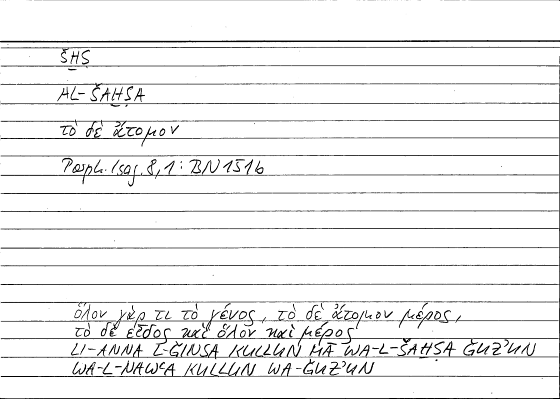 ŠḪṢ
AL-ŠAḪṢA
τὸ δὲ ἄτομον
Porph. Isag. 8,1 : BN 151b
ὅλον γάρ τι τὸ γένος, τὸ δὲ ἄτομον μέρος,
τὸ δὲ εἶδος καὶ ὅλον καὶ μέρος
LI-ANNA L-ǦINSA KULLUN MĀ WA-L-ŠAḪṢA ǦUZʾUN
WA-L-NAWʿA KULLUN WA-ǦUZʾUN